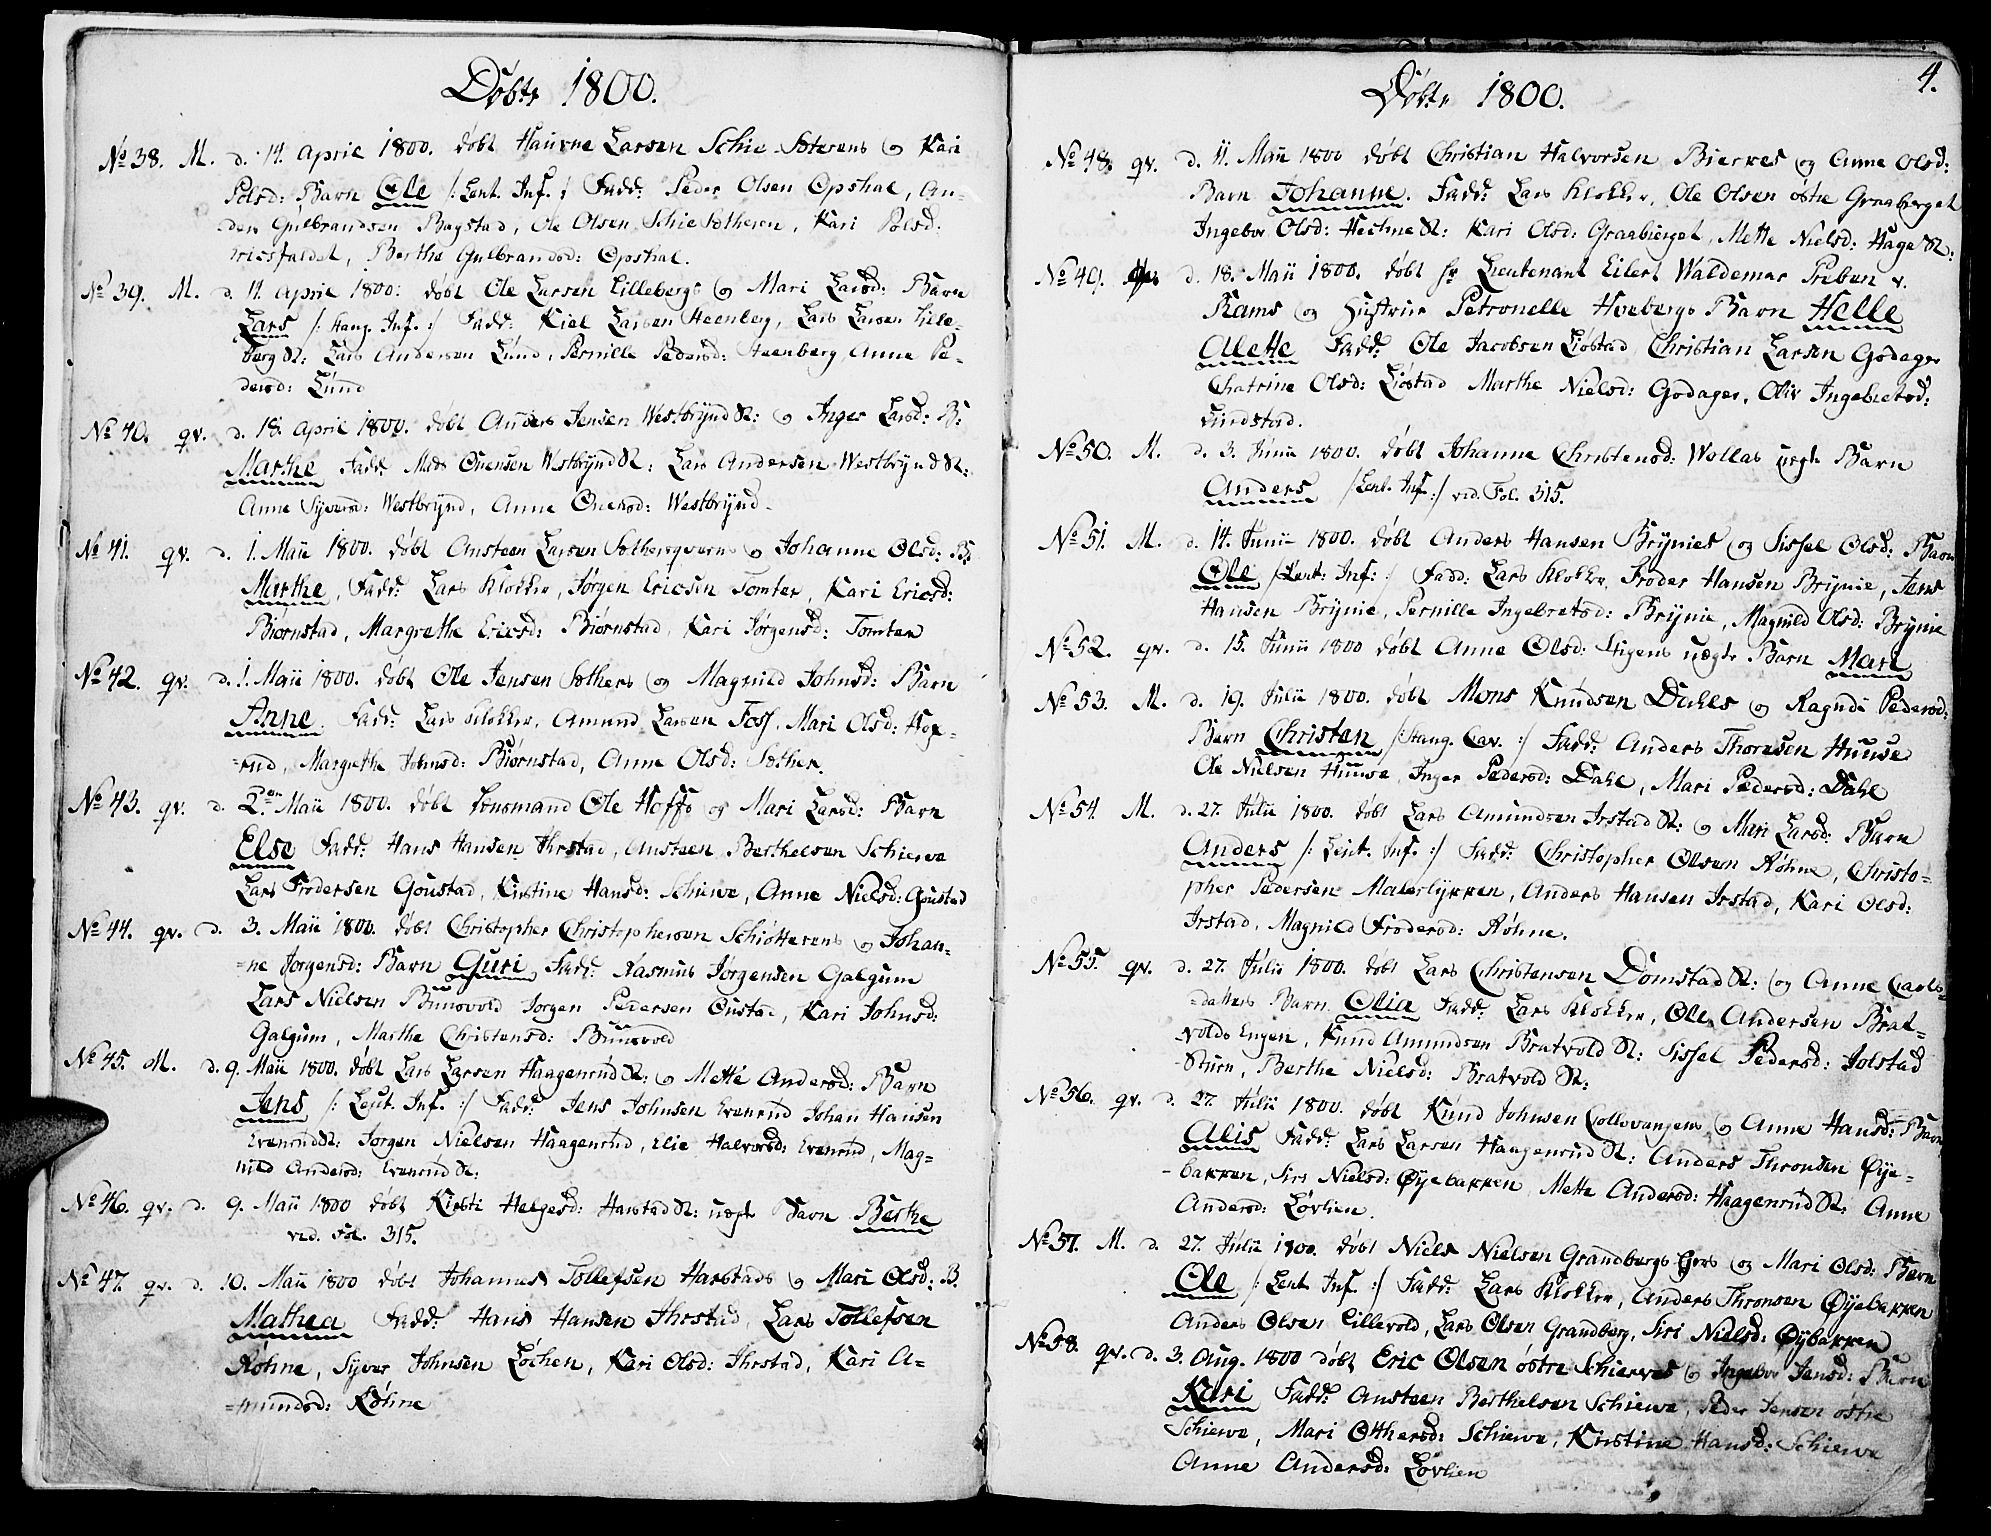 Døbte 1800.
No 38. M. d. 14. April 1800. døbt Haurne Larsen Schie Sæterens og Kari
Polsd: Barn Ole /: Leut. Inf. :/ Fadd: Peder Olsen Opshal, An-
ders Gulbrandsen Bagstad, Ole Olsen Schie Sætheren, Kari Polsd:
Berthe Gulbrandsd: Opshal.
No 39. M. d. 14. April 1800. døbt Ole Larsen Lillebergs og Mari Larsd: Barn
Lars /: Stang. Inf. :/ Fadd: Kiel Larsen Steenberg, Lars Larsen Lille-
berg St: Lars Andersen Lund, Pernille Pedersd: Steenberg Anne Pe-
dersd: Lund
No 40. qv. d. 18. April 1800. døbt Anders Jensen Westbrynd St: og Inger Larsd: B:
Marthe Fadd: Mads Onensen Westbrynd St: Lars Andersen Westbrynd St:
Anne Syversd: Westbrynd, Anne Onersd: Westbrynd.
No 41. qv. d. 1. Maii 1800. døbt Ansteen Larsen Sætherqverns og Johanne Olsd: B:
Marthe, Fadd: Lars Klokker, Jørgen Ericsen Tomter, Kari Ericsd:
Biørnstad, Margrethe Ericsd: Biørnstad, Kari Jørgensd: Tomter
No 42. qv. d. 1. Maii 1800. døbt Ole Jensen Sæthers og Magnild Johnsd: Barn
Anne. Fadd: Lars Klokker, Amund Larsen Foss, Mari Olsd: Hof-
=rud, Margrethe Johnsd: Biørnstad, Anne Olsd: Sæther.
No 43. qv. d. 2den Maii 1800. døbt Lensmand Ole Hoffs og Mari Larsd: Barn
Else Fadd: Hans Hansen Ihrstad, Ansteen Berthelsen Schieve
Lars Frodersen Goustad, Kirstine Hansd: Schieve, Anne Nielsd: Goustad
No 44. qv. d. 3. Maii 1800. døbt Christopher Christophersen Schiötterens og Johan-
=ne Jørgensd: Barn Guri, Fadd: Rasmus Jørgensen Galgum
Lars Nielsen Bunsvold Jørgen Pedersen Onstad, Kari Johnsd:
Galgum, Marthe Christensd: Bunsvold
No 45. M. d. 9. Maii 1800. døbt Lars Larsen Haagenrud St: og Mette Andersd: Barn
Jens /: Leut. Inf. :/ Fadd: Jens Johnsen Evenrud Johan Hansen
Evenrud St: Jørgen Nielsen Haagenrud, Elie Halvorsd: Evenrud, Mag-
nild Andersd: Evenrud St:
No 46. qv. d. 9. Maii 1800 døbt Kirsti Helgesd: Harstad St: uægte Barn Berthe
vid. Fol. 315.
No 47. qv. d. 10. Maii 1800 døbt Johannes Tollefsen Harstads og Mari Olsd: B.
Mathea Fadd: Hans Hansen Ihrstad, Lars Tollefsen
Røhne, Syver Johnsen Løchen, Kari Olsd: Ihrstad, Kari A-
=mundsd: Røhne
4.
Døbte 1800.
No 48. qv. d. 11. Maii 1800 døbt Christian Halvorsen Bierkes og Anne Olsd:
Barn Johanne. Fadd: Lars Klokker, Ole Olsen østre Graaberget
Ingebor Olsd: Hechne St: Kari Olsd: Graaberget, Mette Nielsd: Hage St:
No 49. qv. d. 18. Maii 1800. døbt Hr Lieutenant Eilert Waldemar Preben v.
Rams og Hustrue Petronelle Hvebergs Barn Helle
Alette Fadd: Ole Jacobsen Liøstad Christian Larsen Godager
Chatrine Olsd: Liøstad Marthe Nielsd: Godager, Oliv Ingebretsd:
Lundstad.
No 50. M. d. 3. Junii 1800. døbt Johanne Christensd: Wollas uægte Barn
Anders /: Leut. Inf :/ vid. Fol. 315.
No 51. M. d. 14. Junii 1800. døbt Anders Hansen Brynies og Sissel Olsd: Barn
Ole /: Leut: Inf: :/ Fadd: Lars Klokker, Froder Hansen Brynie, Jens
Hansen Brynie, Pernille Ingebretsd: Brynie, Magnild Olsd: Brynie
No 52. qv. d. 15. Junii 1800 døbt Anne Olsd: Stigens uægte Barn Mari
No 53. M. d. 19. Julii 1800. døbt Mons Knudsen Dahls og Ragndi Pedersd:
Barn Christen /: Stang. Cav. :/ Fadd: Anders Thoresen Huuse
Ole Nielsen Huuse, Inger Pedersd: Dahl, Mari Pedersd: Dahl
No 54. M. d. 27. Julii 1800. døbt Lars Amundsen Irstad St: og Mari Larsd: Barn
Anders /: Leut. Inf. :/ Fadd: Christopher Olsen Røhne, Christo-
pher Pedersen Malerlykken, Anders Hansen Irstad, Kari Olsd:
Irstad, Magnild Frodersd: Røhne.
No 55. qv. d. 27. Julii 1800. døbt Lars Christensen Domstad St: og Anne Carls-
=datters Barn Olia Fadd: Lars Klokker, Ole Andersen Brat-
volds Engen, Knud Amundsen Bratvold St: Sissel Pedersd: Jolstad
Stuen, Berthe Nielsd: Bratvold St:
No 56. qv. d. 27. Julii 1800. døbt Knud Johnsen Collsvangens og Anne Hansd: Barn
Alis Fadd: Lars Larsen Haagenrud St: Anders Thronsen Øye-
-bakken, Siri Nielsd: Øyebakken, Mette Andersd: Haagenrud St: Anne
Andersd: Løvlien.
No 57. M. d. 27. Julii 1800. døbt Niels Nielsen Grandbergs Gers og Mari Olsd: Barn
Ole /: Leut. Inf :/ Fadd: Lars Klokker, Anders Thronsen Øyebakken
Anders Olsen Lillevold, Lars Olsen Grandberg, Siri Nielsd: Øyebakken
No 58. qv. d. 3. Aug. 1800 døbt Eric Olsen østre Schieves og Ingebor Jensd: Barn
Kari Fadd: Ansteen Berthelsen Schieve, Peder Jensen østre
Schieve, Mari Othersd: Schieve, Kirstine Hansd: Schieve
Anne Andersd: Løvlien